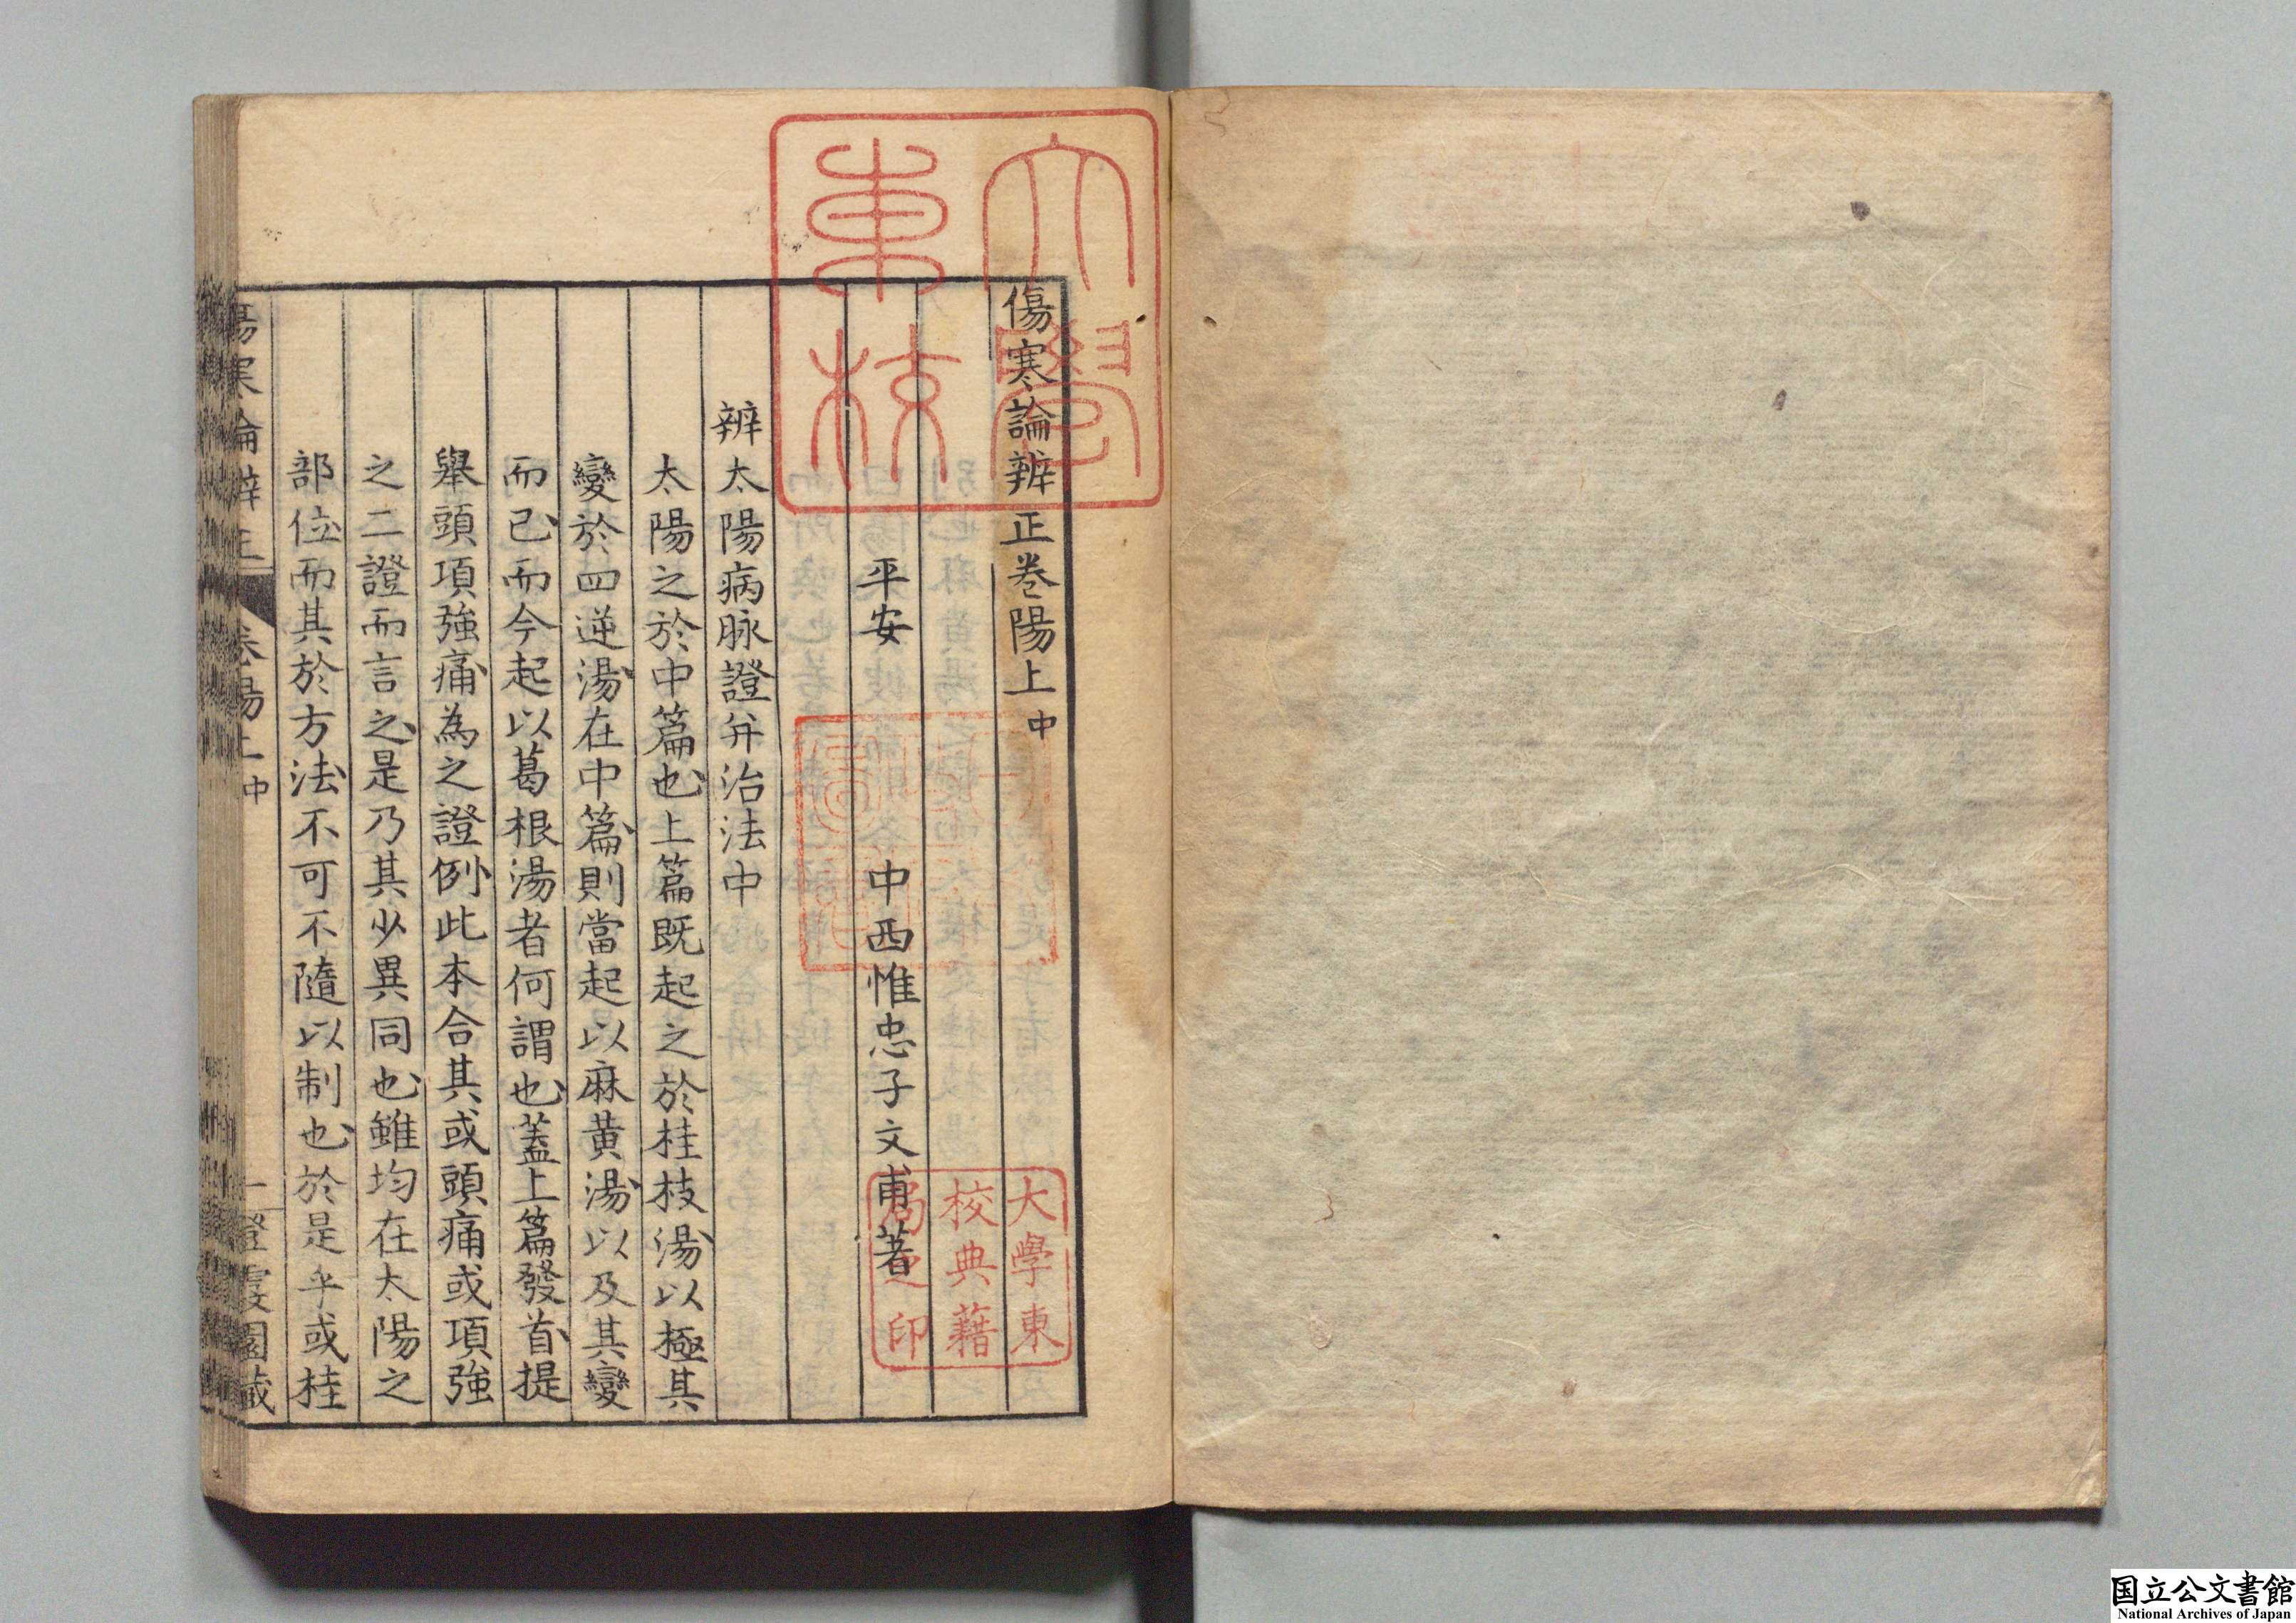 傷寒論辨正卷陽上中
平安 中西惟忠子文甫著
辨太陽病脉證并治法中
太陽之於中篇也上篇既起之於桂枝湯以極其
變於四逆湯在中篇則當起以麻黄湯以及其變
而已而今起以葛根湯者何謂也蓋上篇發首提
舉頭項強痛為之證例此本合其或頭痛或項強
之二證而言之是乃其少異同也雖均在太陽之
部位而其於方法不可不隨以制也於是乎或桂
傷寒論辨正 卷陽上中 一
大學東校
大學東
校典藉
局之印
国立公文書館
National Archives of Japan